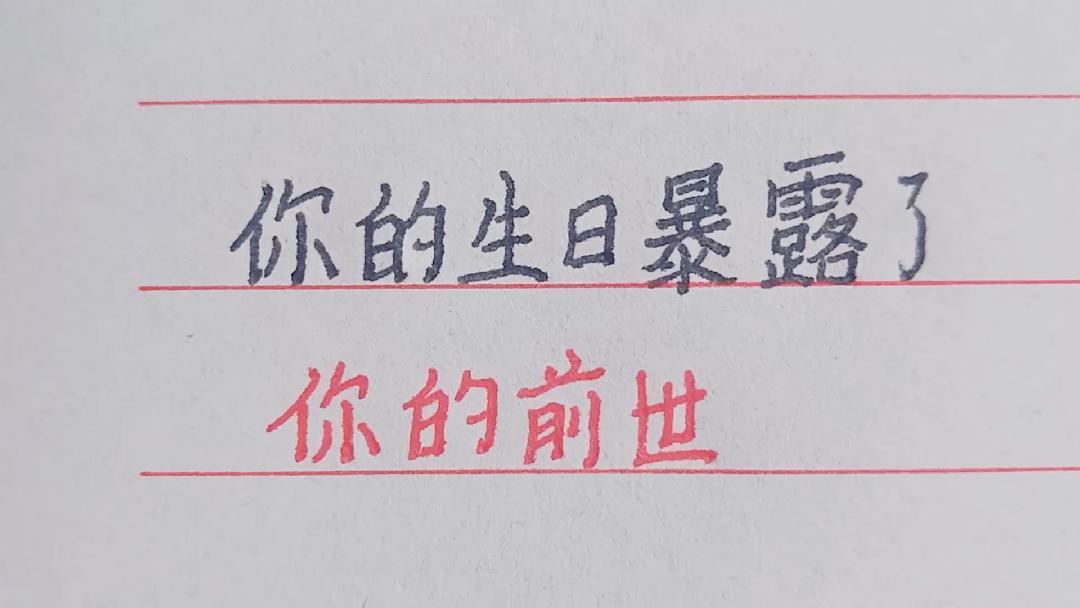 你的生日暴露了
你的前世